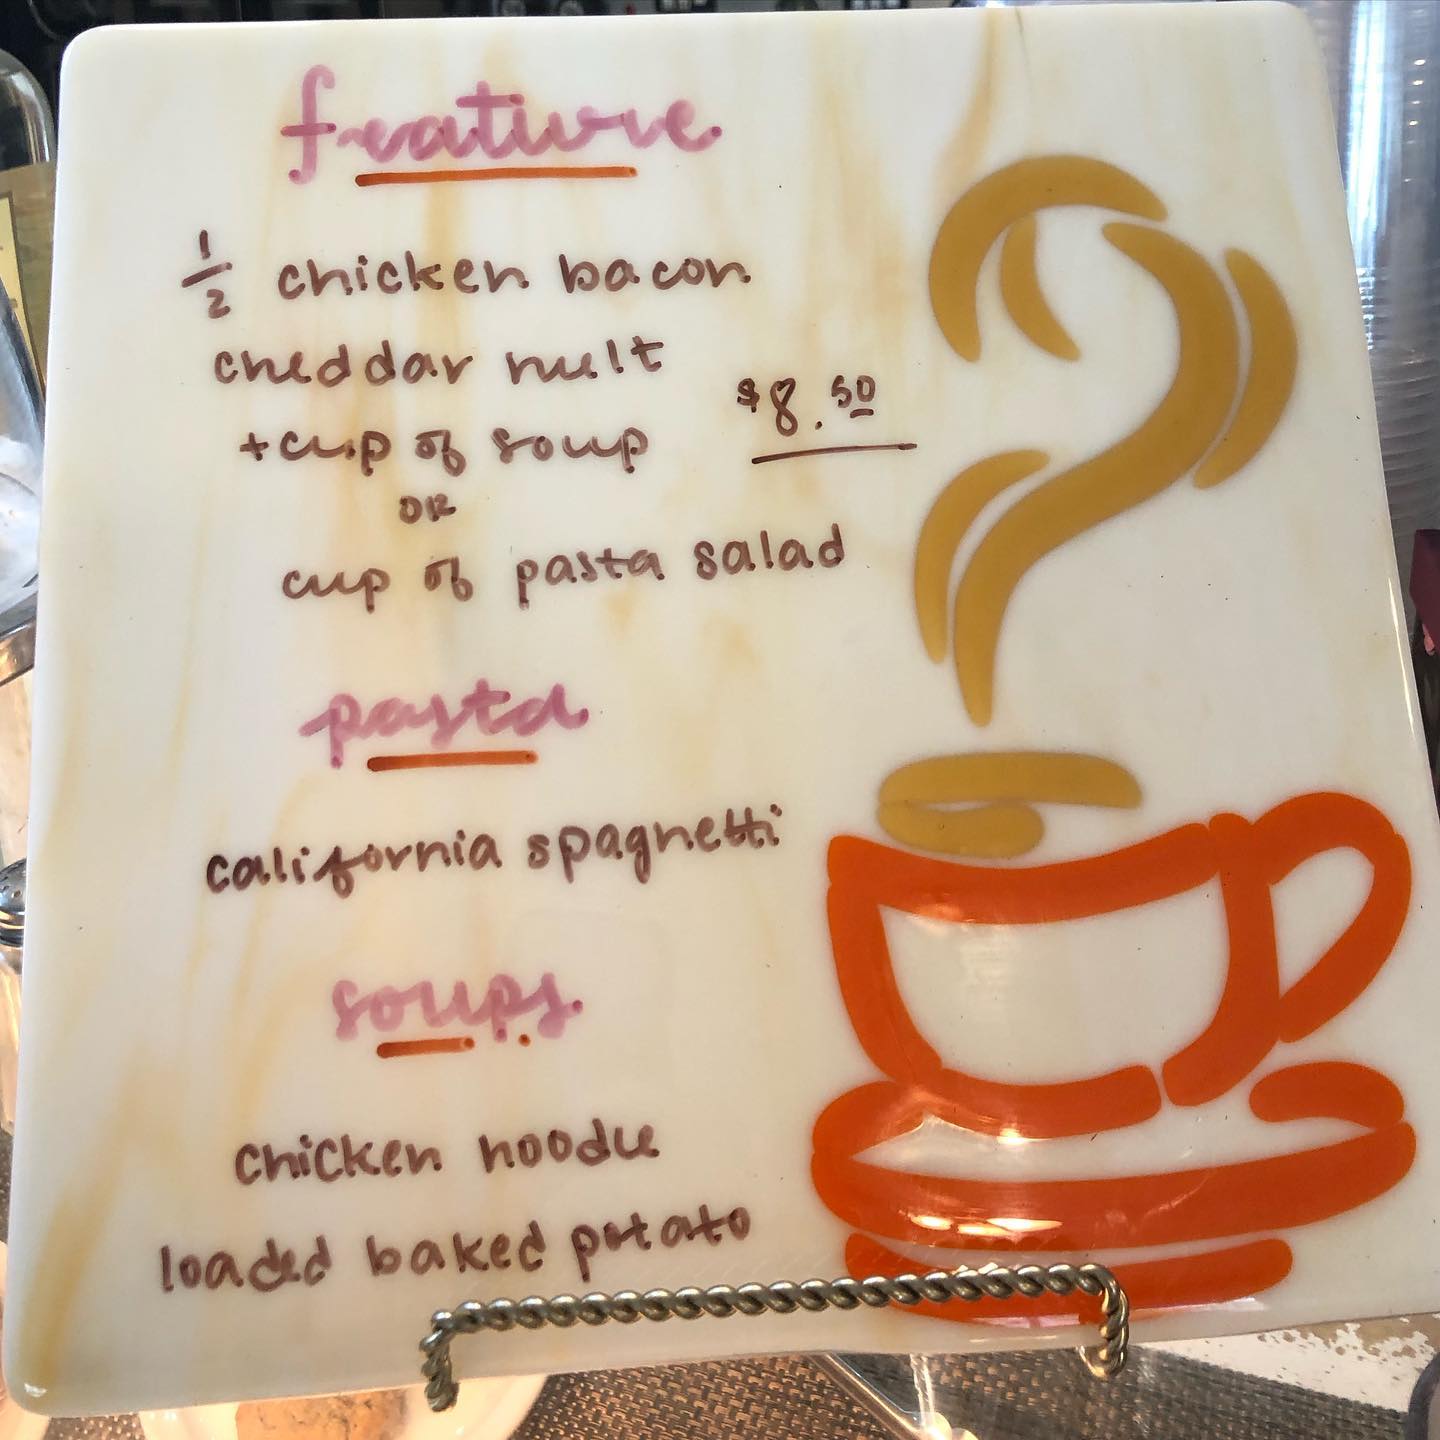 feature
1/2 chicken bacon
cheddar melt
+cup of soup
$8.50
OR
cup of pasta salad
pasta
california spaghetti
soups
chicken noodle
loaded baked potato